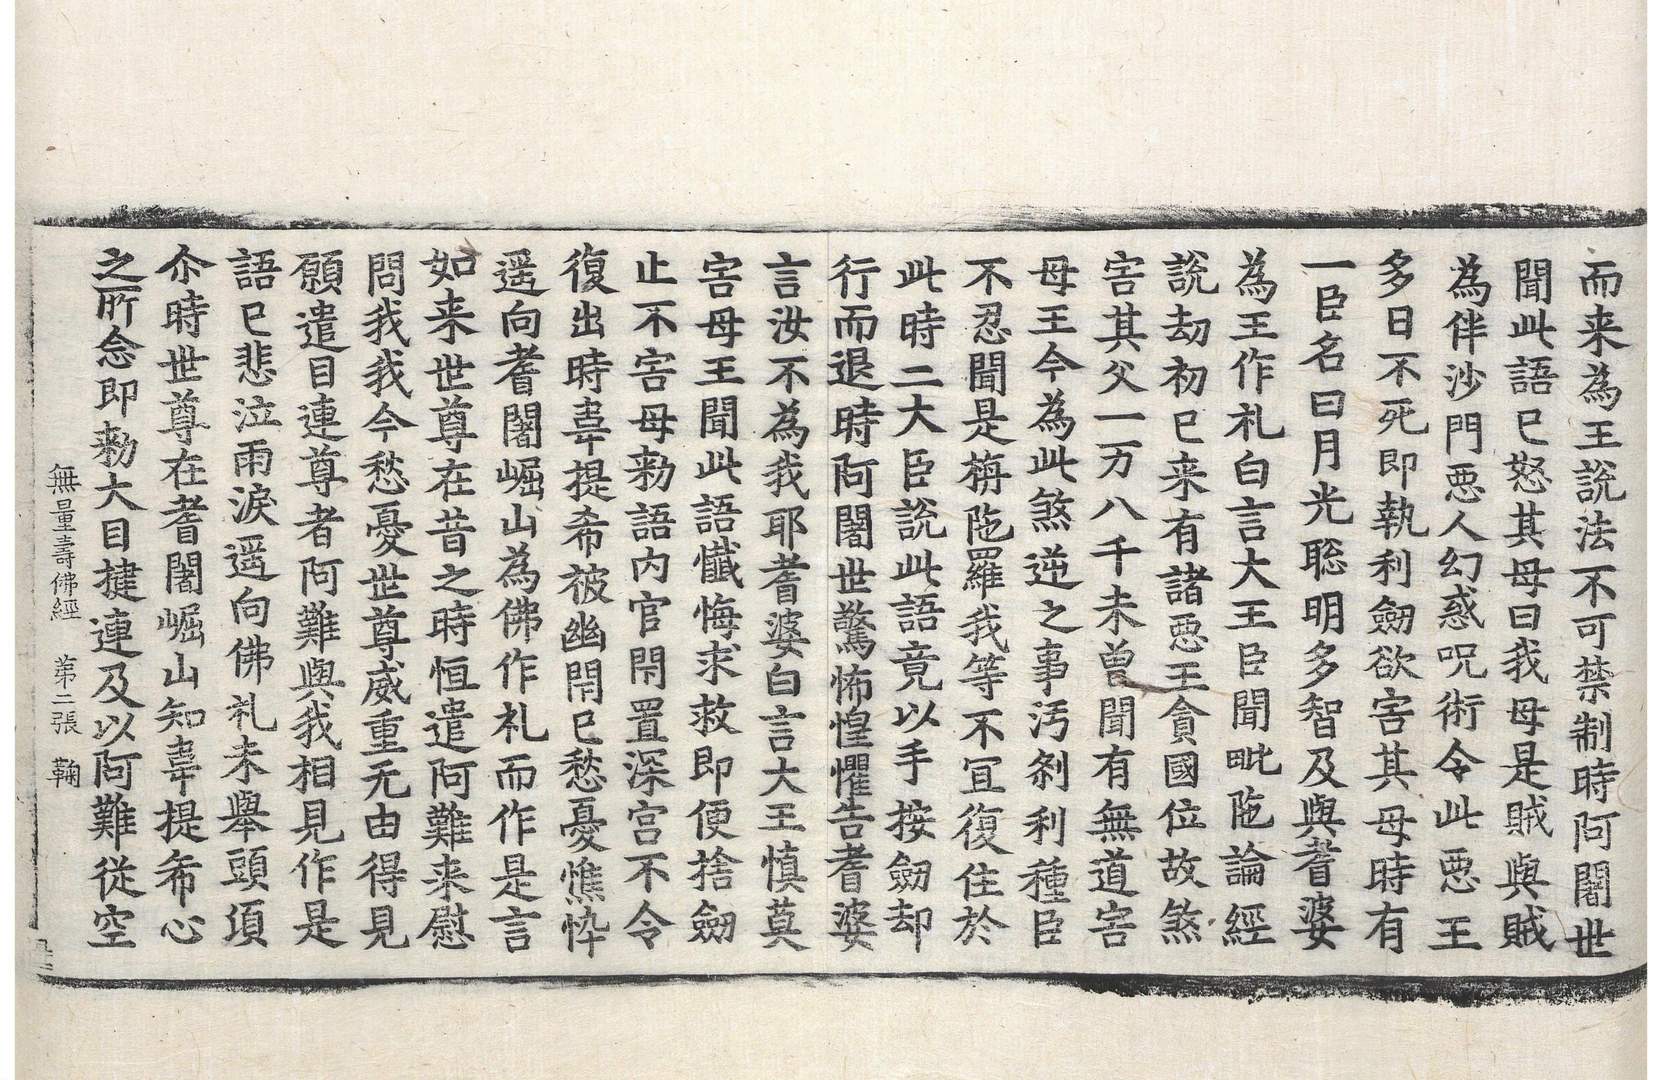 而来為王說法不可禁制時阿闍世
聞此語已怒其母曰我母是賊與賊
為伴沙門惡人幻惑呪術令此惡王
多日不死即執利劒欲害其母時有
一臣名曰月光聡明多智及與耆婆
為王作礼白言大王臣聞毗陁論經
說劫初已来有諸惡王貪國位故煞
害其父一万八千未曾聞有無道害
母王今為此煞逆之事汚刹利種臣
不忍聞是栴陁羅我等不冝復住於
此時二大臣說此語竟以手按劒却
行而退時阿闍世驚怖惶懼告耆婆
言汝不為我耶耆婆白言大王慎莫
害母王聞此語懺悔求救即便捨劒
止不害母勑語内官閇置深宫不令
復出時韋提希被幽閇已愁憂憔悴
遥向耆闍崛山為佛作礼而作是言
如来世尊在昔之時恒遣阿難来慰
問我我今愁憂世尊威重无由得見
願遣目連尊者阿難與我相見作是
語已悲泣雨淚遥向佛礼未舉頭頃
尒時世尊在耆闍崛山知韋提希心
之所念即勑大目揵連及以阿難從空
無量壽佛經 第二張 鞠